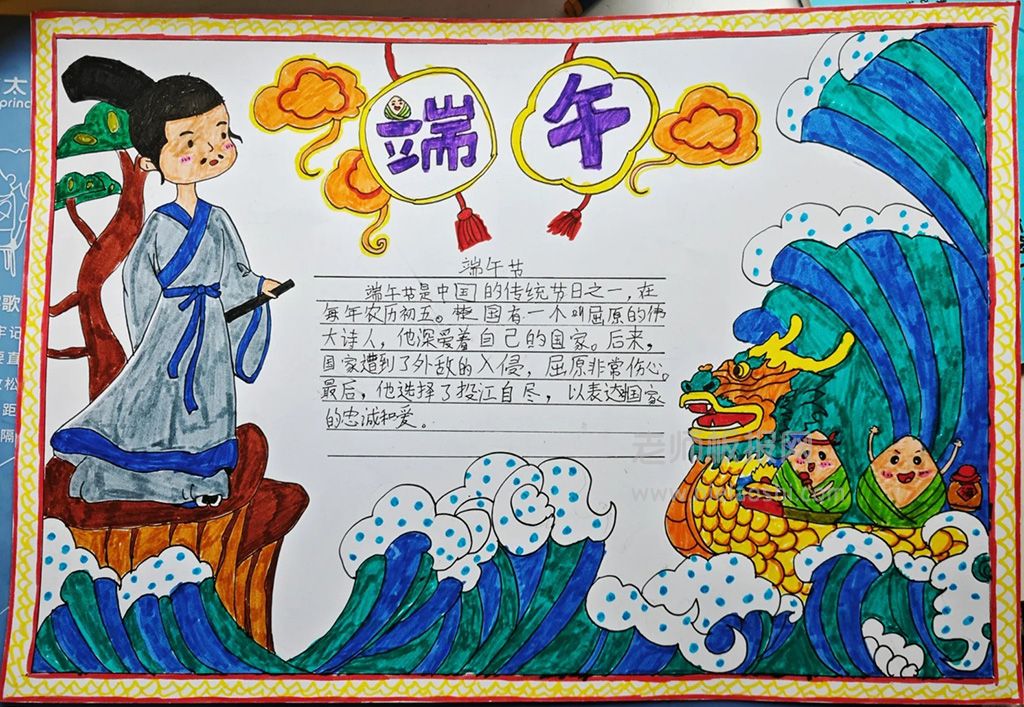 端午
端午节
端午节是中国的传统节日之一，在
每年农历初五。楚国有一个叫屈原的伟
大诗人，他深爱着自己的国家。后来，
国家遭到了外敌的入侵，屈原非常伤心。
最后，他选择了投江自尽，以表达对国家
的忠诚和爱。
老师板报网
太
princ
歌
牢记
要直
放松
距
隔